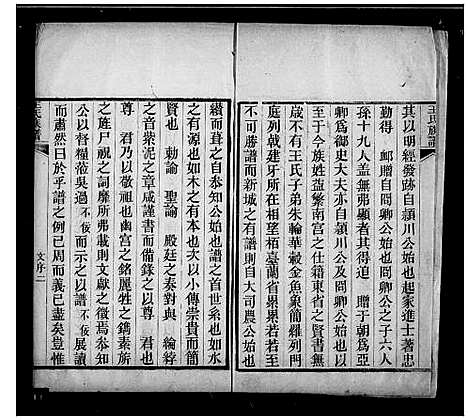 王氏族譜
其以明經發跡自潁川公始也起家進士著忠
勤得 䘏贈自問卿公始也問卿公之子六人
孫十九人盡無弗顯者其得迫 贈于朝為亞
卿為御史大夫亦自潁川公及問卿公始也以
至于今族姓益繁南宮之仕籍東省之賢書無
歲不有王氏子弟朱輪華轂金魚象簡羅列門
庭列戟建牙所在相望栢臺蘭省累累若若故
不可勝譜而新城之有譜則自大司農公始也
續而葺之自叅知公始也譜之首世系也如水
之有源也如木之有本也次以小傳崇賁而簡
賢也 勅諭 聖諭 殿廷之奏對與 綸綍
之音紫泥之章咸謹書而備錄之以尊 君也
尊 君乃以敬祖也幽宮之銘麗牲之鐫素所
之旌尸祝之詞靡所弗載則文獻之徵焉叅知
公以督糧蒞吳過不佞而示之以譜不佞展讀
而肅然曰於乎譜之例已周而義已盡矣豈惟
王氏族譜
文序二